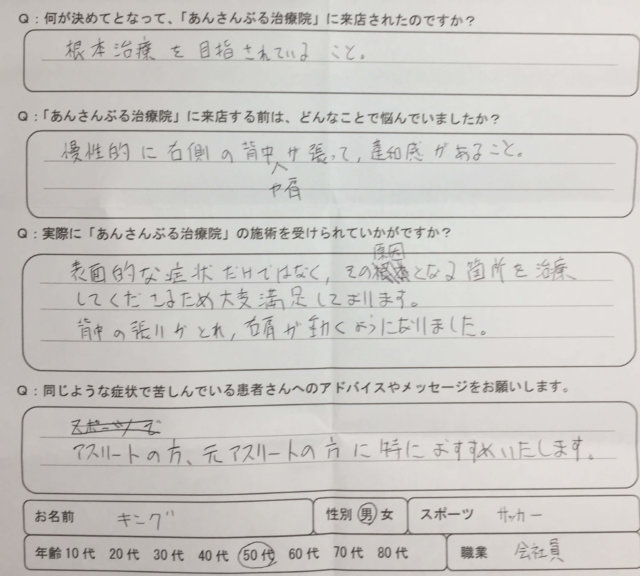 Q：何が決めてとなって、「あんさんぶる治療院」に来店されたのですか？
根本治療を目指されていること。
Q：「あんさんぶる治療院」に来店する前は、どんなことで悩んでいましたか？
慢性的に右側の背中や肩が張って、違和感があること。
Q：実際に「あんさんぶる治療院」の施術を受けられていかがですか？
表面的な症状だけではなく、その原因となる箇所を治療
してくださるため大変満足しております。
背中の張りがとれ、右肩が動くようになりました。
Q：同じような症状で苦しんでいる患者さんへのアドバイスやメッセージをお願いします。
アスリートの方、元アスリートの方に特におすすめいたします。
お名前 キング 性別 男 女 スポーツ サッカー
年齢 10代 20代 30代 40代 50代 60代 70代 80代 職業 会社員